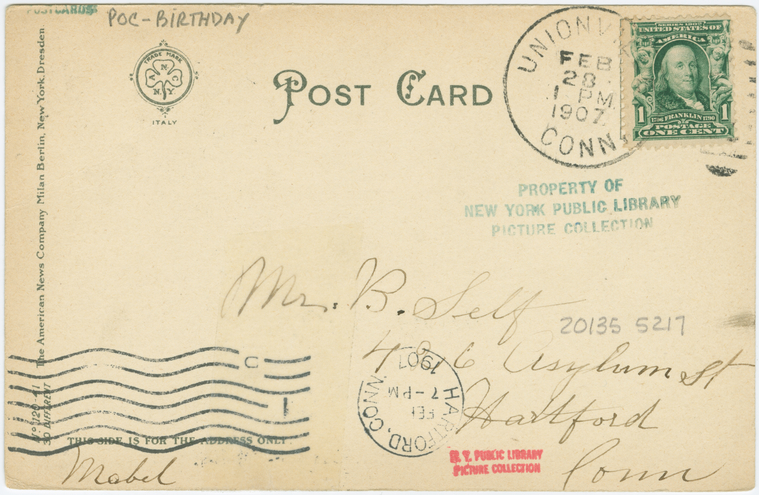 POSTCARDS
POC-BIRTHDAY
TRADE MARK
A N C
N.Y.
ITALY
POST CARD
UNIONVI
FEB
28
1 PM
1907
CONN.
SERIES 1902
UNITED STATES OF
AMERICA
1706 FRANKLIN 1790
1 POSTAGE 1
ONE CENT
PROPERTY OF
NEW YORK PUBLIC LIBRARY
PICTURE COLLECTION
The American News Company Milan Berlin, New York, Dresden
30 DIFFERENT
Mr. B. Self
20135 5217
6 Asylum St
Hartford
Conn
HARTFORD, CONN.
FEB
7-PM
1907
C
1
THIS SIDE IS FOR THE ADDRESS ONLY
Mabel
N. Y. PUBLIC LIBRARY
PICTURE COLLECTION